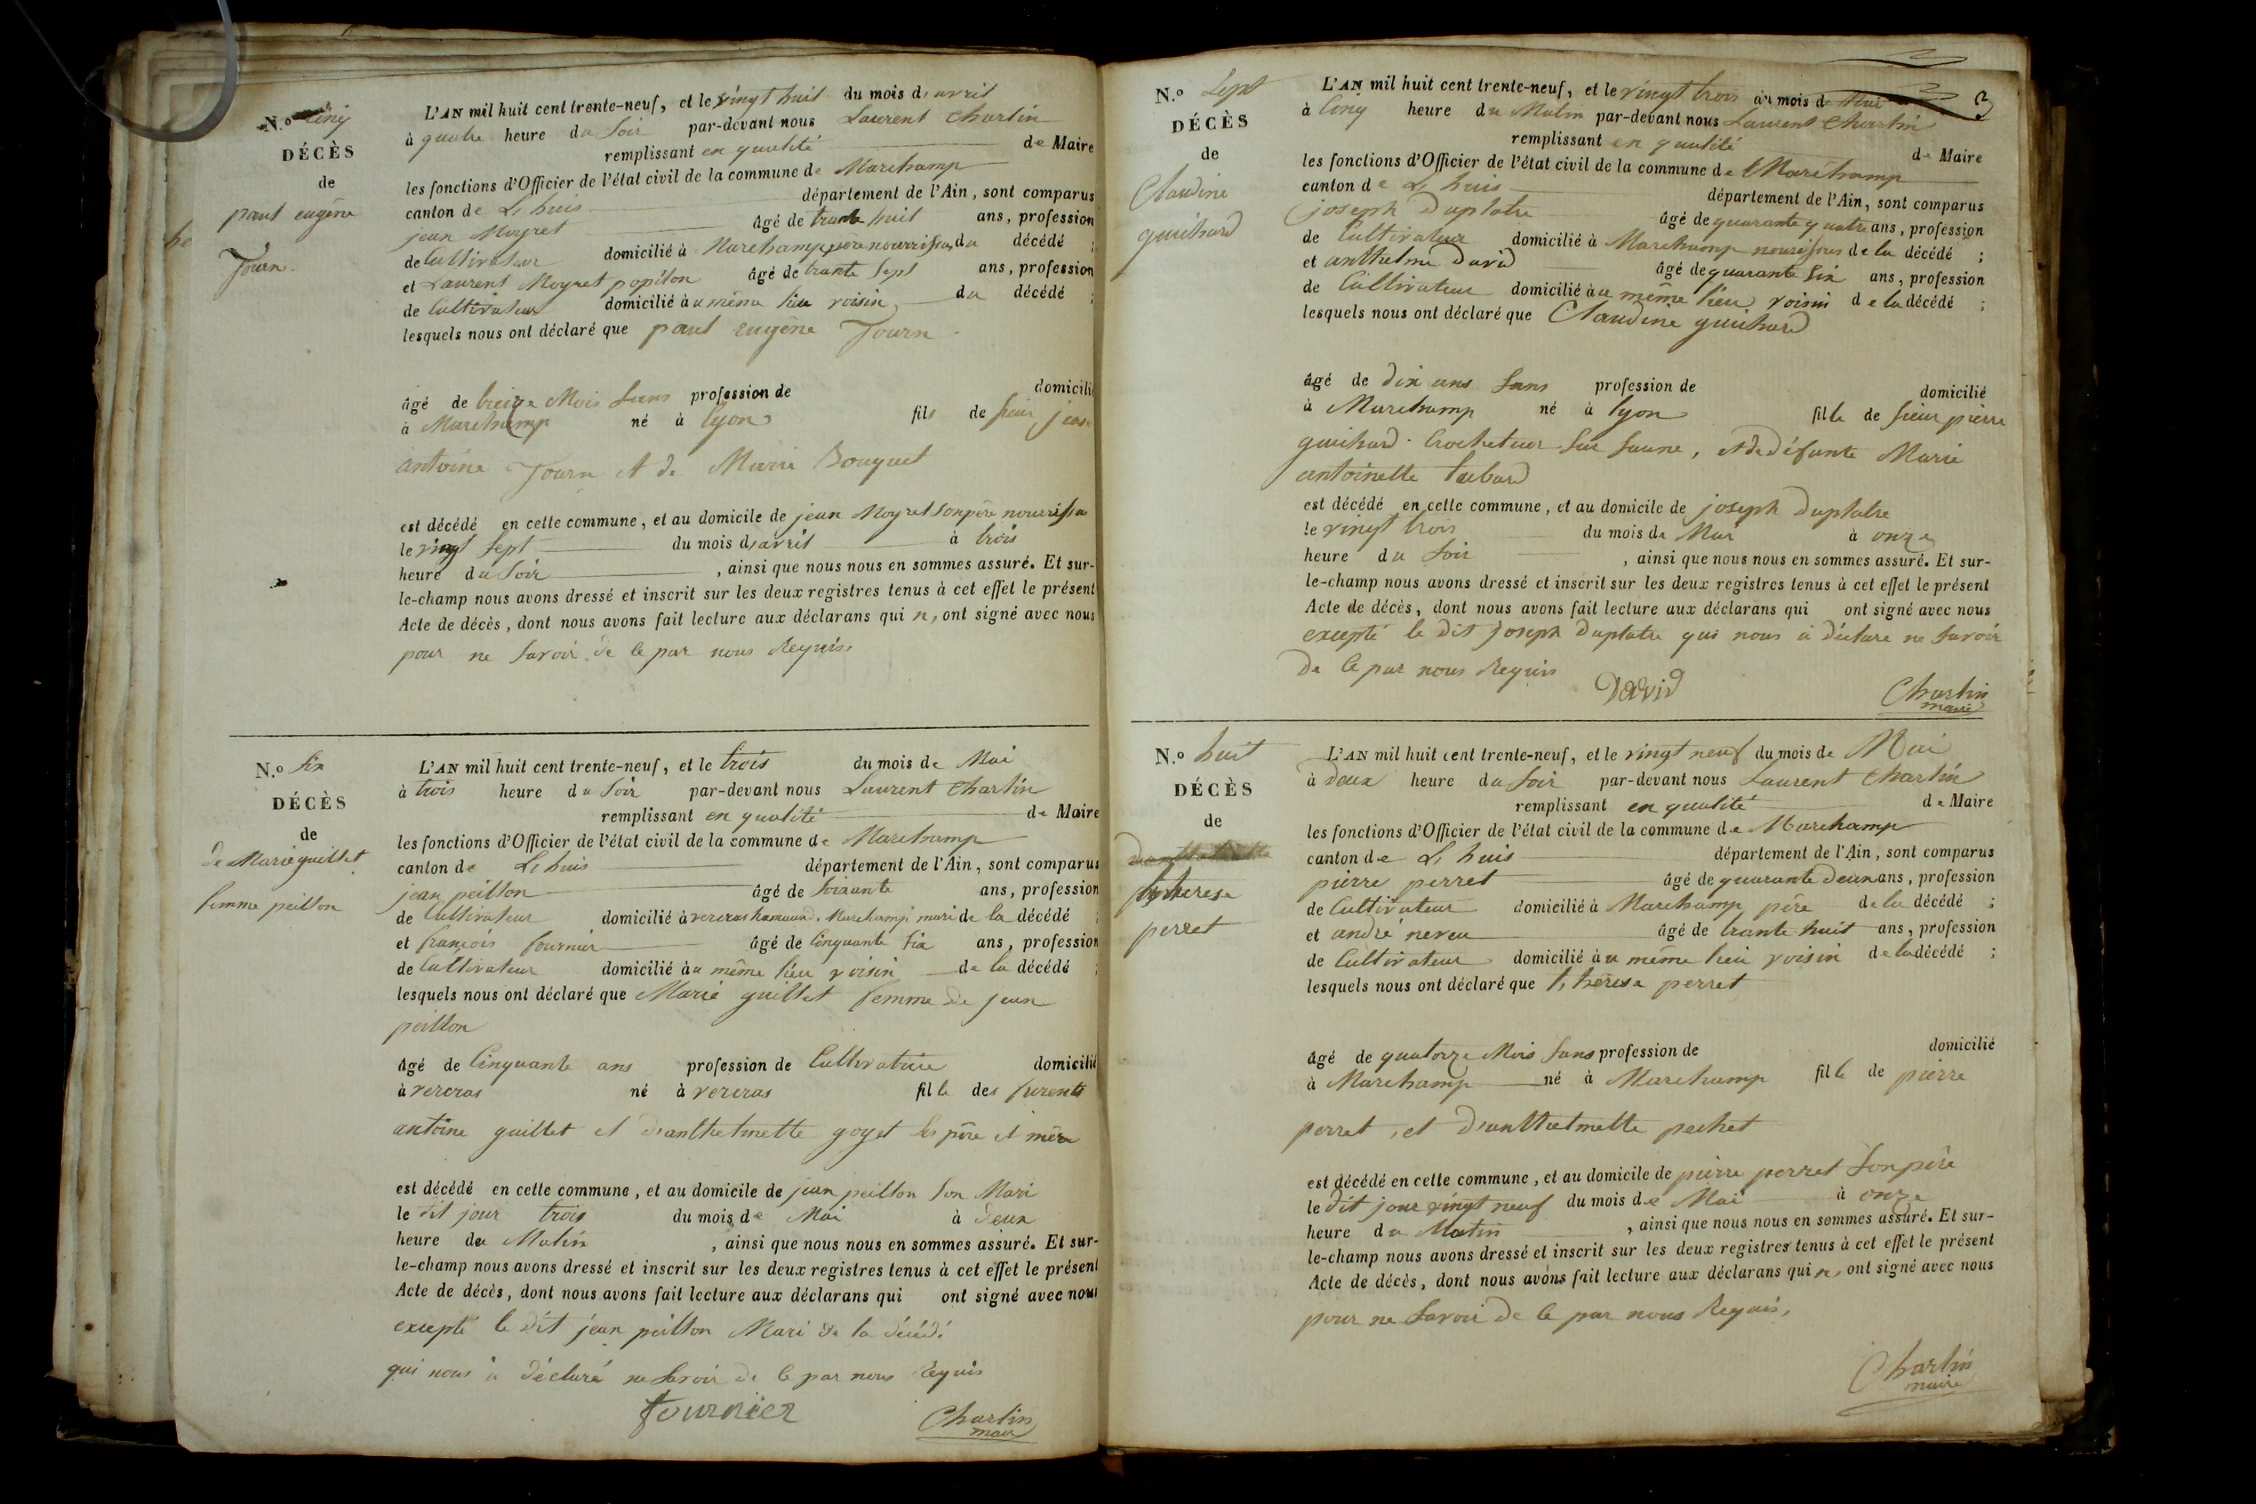 N.º Cinq
DÉCÈS
de
paul eugène
Tourn.
L'AN mil huit cent trente-neuf, et le vingt huit du mois d'avril
à quatre heure du Soir par-devant nous Laurent Charlin
remplissant en qualité de Maire
les fonctions d'Officier de l'état civil de la commune de Marchamp
canton de L'huis département de l'Ain, sont comparus
jean Moyret âgé de trante huit ans, profession
de Cultivateur domicilié à Marchamp père nourrissier du décédé ;
et Laurent Moyret popilon âgé de trante Sept ans, profession
de Cultivateur domicilié au même lieu voisin du décédé ;
lesquels nous ont déclaré que paul eugène Tourn
âgé de treize Mois Sans profession de domicilié
à Marchamp né à lyon fils de sieur jean
antoine Tourn et de Marie Bouquet
est décédé en cette commune, et au domicile de jean Moyret Son père nourrissier
le vingt Sept du mois d'avril à trois
heure du Soir , ainsi que nous nous en sommes assuré. Et sur-
le-champ nous avons dressé et inscrit sur les deux registres tenus à cet effet le présent
Acte de décès, dont nous avons fait lecture aux déclarans qui n'ont signé avec nous
pour ne Savoir de Ce par nous Requis
N.º Six
DÉCÈS
de
de Marie guillet
femme peillon
L'AN mil huit cent trente-neuf, et le trois du mois de Mai
à trois heure du Soir par-devant nous Laurent Charlin
remplissant en qualité de Maire
les fonctions d'Officier de l'état civil de la commune de Marchamp
canton de L'huis département de l'Ain, sont comparus
jean peillon âgé de Soixante ans, profession
de Cultivateur domicilié à vercras hameau de Marchamp mari de la décédé ;
et françois fournier âgé de Cinquante Six ans, profession
de Cultivateur domicilié au même lieu voisin de la décédé ;
lesquels nous ont déclaré que Marie guillet femme de jean
peillon
âgé de Cinquante ans profession de Cultivatrice domicilié
à vercras né à vercras fille des parents
antoine guillet et d'anthelmette goyet Ses père et mère
est décédé en cette commune, et au domicile de jean peillon Son Mari
le dit jour trois du mois de Mai à deux
heure du Matin , ainsi que nous nous en sommes assuré. Et sur-
le-champ nous avons dressé et inscrit sur les deux registres tenus à cet effet le présent
Acte de décès, dont nous avons fait lecture aux déclarans qui ont signé avec nous
excepté le dit jean peillon Mari de la décédé
qui nous à déclaré ne Savoir de Ce par nous Requis
fournier Charlin
maire
N.º Sept
DÉCÈS
de
Claudine
guichard
3
L'AN mil huit cent trente-neuf, et le vingt trois du mois de Mai
à Cinq heure du Matin par-devant nous Laurent Charlin
remplissant en qualité de Maire
les fonctions d'Officier de l'état civil de la commune de Marchamp
canton de L'huis département de l'Ain, sont comparus
joseph Duplatre âgé de quarante quatre ans, profession
de Cultivateur domicilié à Marchamp de la décédé ;
et anthelme David âgé de quarante Six ans, profession
de Cultivateur domicilié au même lieu voisin de la décédé ;
lesquels nous ont déclaré que Claudine guichard
âgé de dix ans Sans profession de domicilié
à Marchamp né à lyon fille de sieur pierre
guichard Crocheteur Sur Saune, et de défunte Marie
antoinette
est décédé en cette commune, et au domicile de joseph Duplatre
le vingt trois du mois de Mai à onze
heure du Soir , ainsi que nous nous en sommes assuré. Et sur-
le-champ nous avons dressé et inscrit sur les deux registres tenus à cet effet le présent
Acte de décès, dont nous avons fait lecture aux déclarans qui ont signé avec nous
excepté le dit Joseph Duplatre qui nous à déclare ne Savoir
de Ce par nous Requis
David Charlin
maire
N.º huit
DÉCÈS
de
therese
perret
L'AN mil huit cent trente-neuf, et le vingt neuf du mois de Mai
à deux heure du Soir par-devant nous Laurent Charlin
remplissant en qualité de Maire
les fonctions d'Officier de l'état civil de la commune de Marchamp
canton de L'huis département de l'Ain, sont comparus
pierre perret âgé de quarante deux ans, profession
de Cultivateur domicilié à Marchamp père de la décédé ;
et andré neveu âgé de trante huit ans, profession
de Cultivateur domicilié au même lieu voisin de la décédé ;
lesquels nous ont déclaré que thérese perret
âgé de quatorze Mois Sans profession de domicilié
à Marchamp né à Marchamp fille de pierre
perret, et d'anthelmette pechet
est décédé en cette commune, et au domicile de pierre perret Son père
le dit jour vingt neuf du mois de Mai à onze
heure du Matin , ainsi que nous nous en sommes assuré. Et sur-
le-champ nous avons dressé et inscrit sur les deux registres tenus à cet effet le présent
Acte de décès, dont nous avons fait lecture aux déclarans qui n'ont signé avec nous
pour ne Savoir de Ce par nous Requis,
Charlin
maire